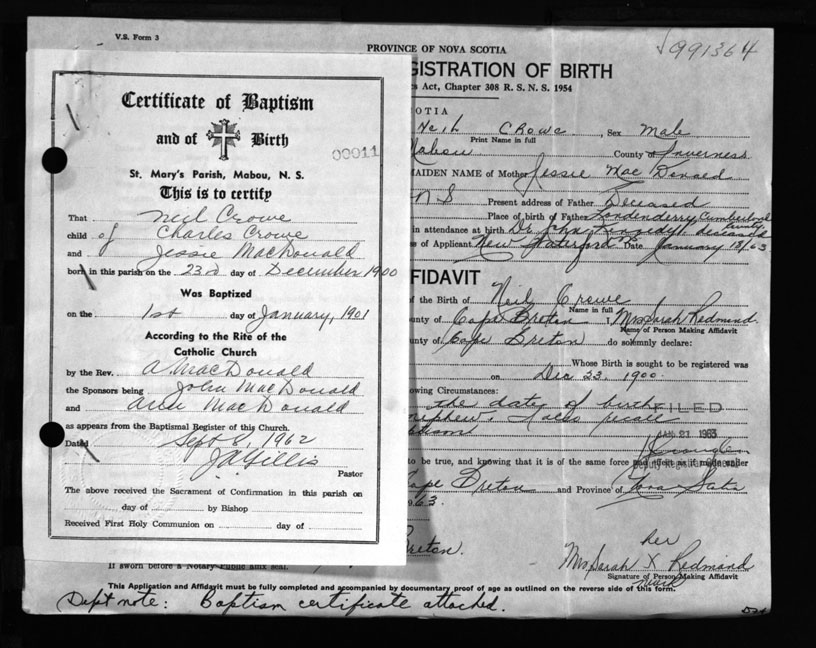 V.S. Form 3
PROVINCE OF NOVA SCOTIA
991364
GISTRATION OF BIRTH
Act, Chapter 308 R. S. N. S. 1954
OTIA
Neil Crowe, Sex Male
Print Name in full
Mabou County of Inverness
MAIDEN NAME of Mother Jessie Mac Donald
N S Present address of Father Deceased
Place of birth of Father Londenderry, Cumberland
County
in attendance at birth Dr. John deceased
s of Applicant New Waterford Date January 18/63
FFIDAVIT
f the Birth of Neil Crowe
Name in full
unty of Cape Breton I, Mrs Sarah Redmond
Name of Person Making Affidavit
unty of Cape Breton do solemnly declare:
Whose Birth is sought to be registered was
on Dec 23, 1900
owing Circumstances:
the date of birth
nephew
FILED
JAN 21 1963
to be true, and knowing that it is of the same force and effect as if made under
Cape Breton and Province of Nova Scotia
963.
Breton.
her
Mrs Sarah X Redmond
Signature of Person Making Affidavit
mark
If sworn before a Notary Public affix seal.
This Application and Affidavit must be fully completed and accompanied by documentary proof of age as outlined on the reverse side of this form.
Dept note: Baptism certificate attached.
Certificate of Baptism
and of Birth
00011
St. Mary's Parish, Mabou, N. S.
This is to certify
That Neil Crowe
child of Charles Crowe
and Jessie MacDonald
born in this parish on the 23rd day of December 1900
Was Baptized
on the 1st day of January, 1901
According to the Rite of the
Catholic Church
by the Rev. A. MacDonald
the Sponsors being John MacDonald
and Ann MacDonald
as appears from the Baptismal Register of this Church.
Dated Sept 8, 1962
J A Gillis
Pastor
The above received the Sacrament of Confirmation in this parish on
day of by Bishop
Received First Holy Communion on day of